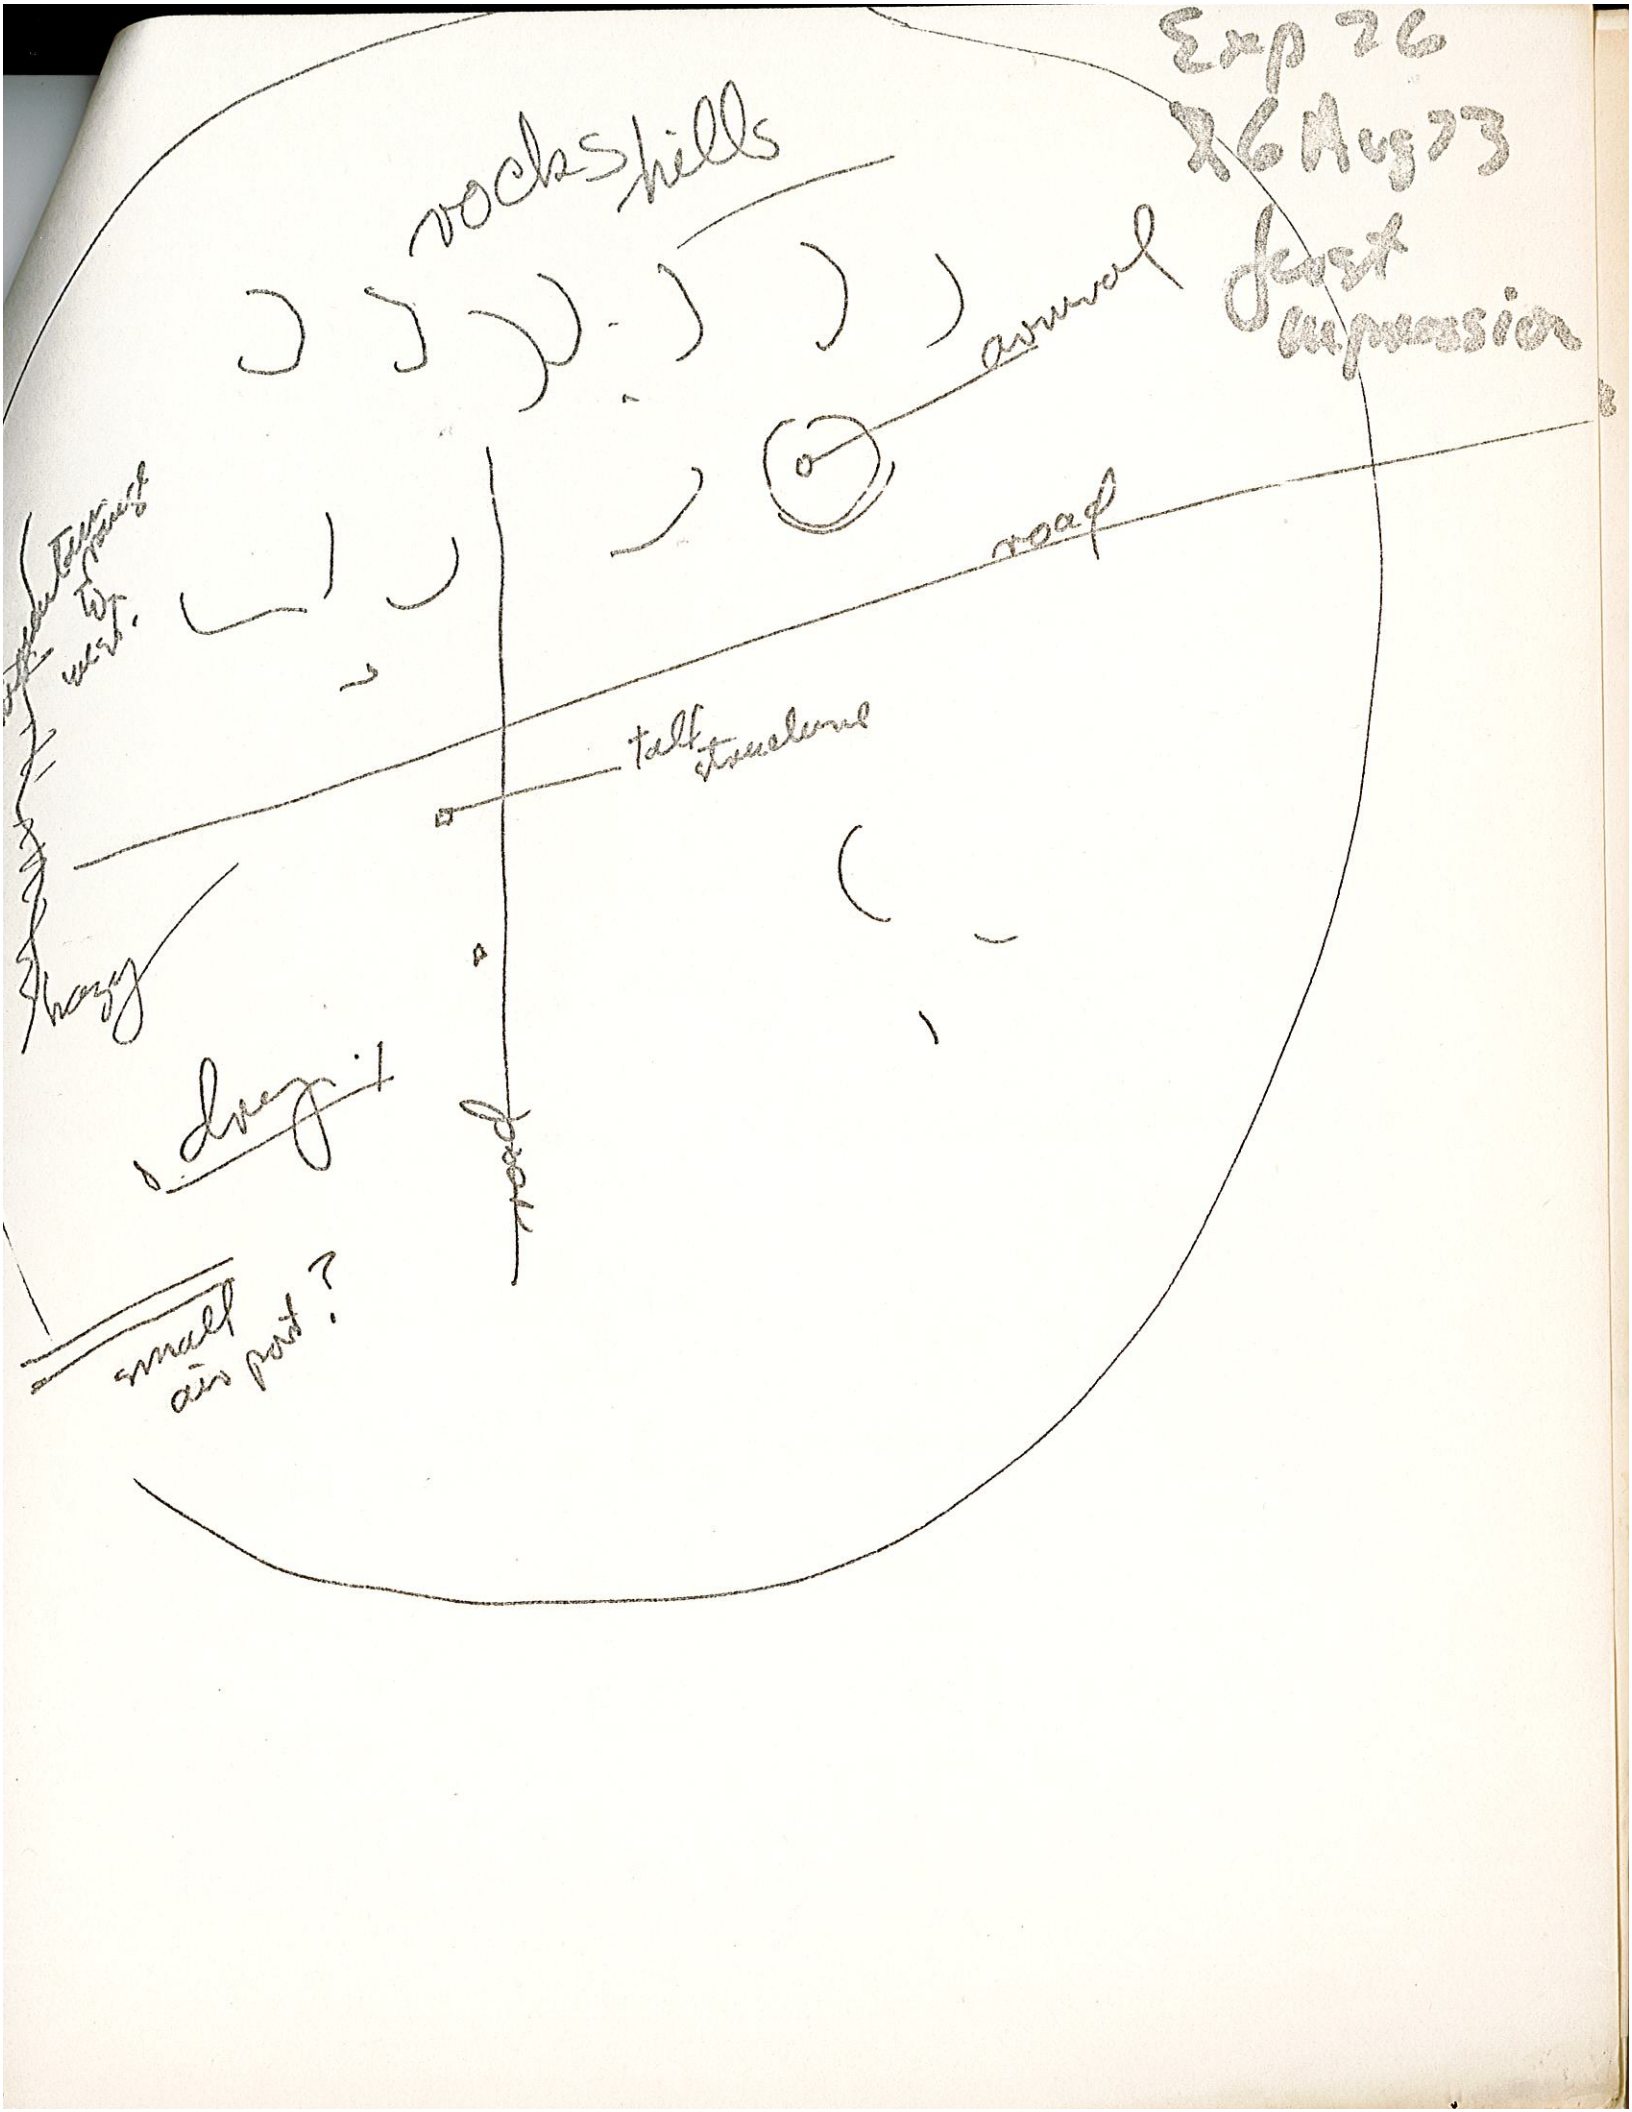 Exp 76
26 Aug 73
first
impression
rocks hills
arrival
road
range
to
west.
tall
structure
hazy
road
small
air port?